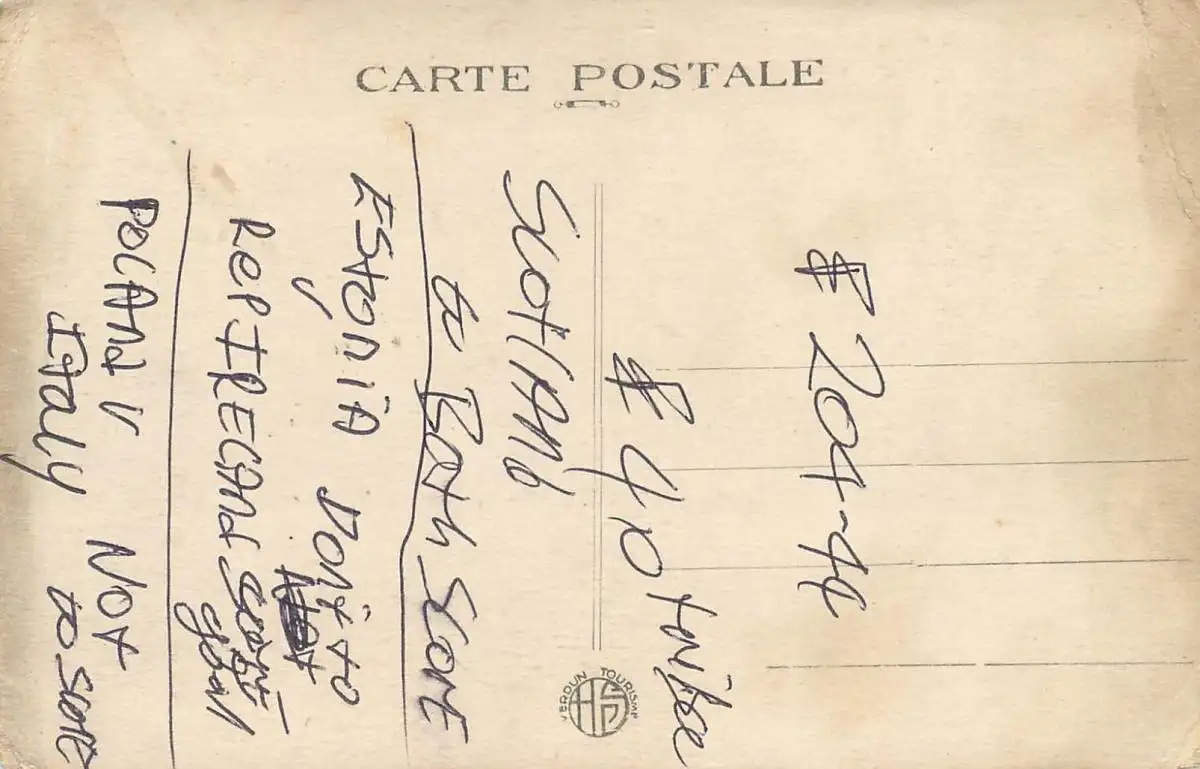 CARTE POSTALE
£ 204-44
£ 40 twise
Scotland
to Both Score
EstoniA Don't to
v
Rep IRELANd score
goal
PolANd v Not
Italy to score
VERDUN TOURISME